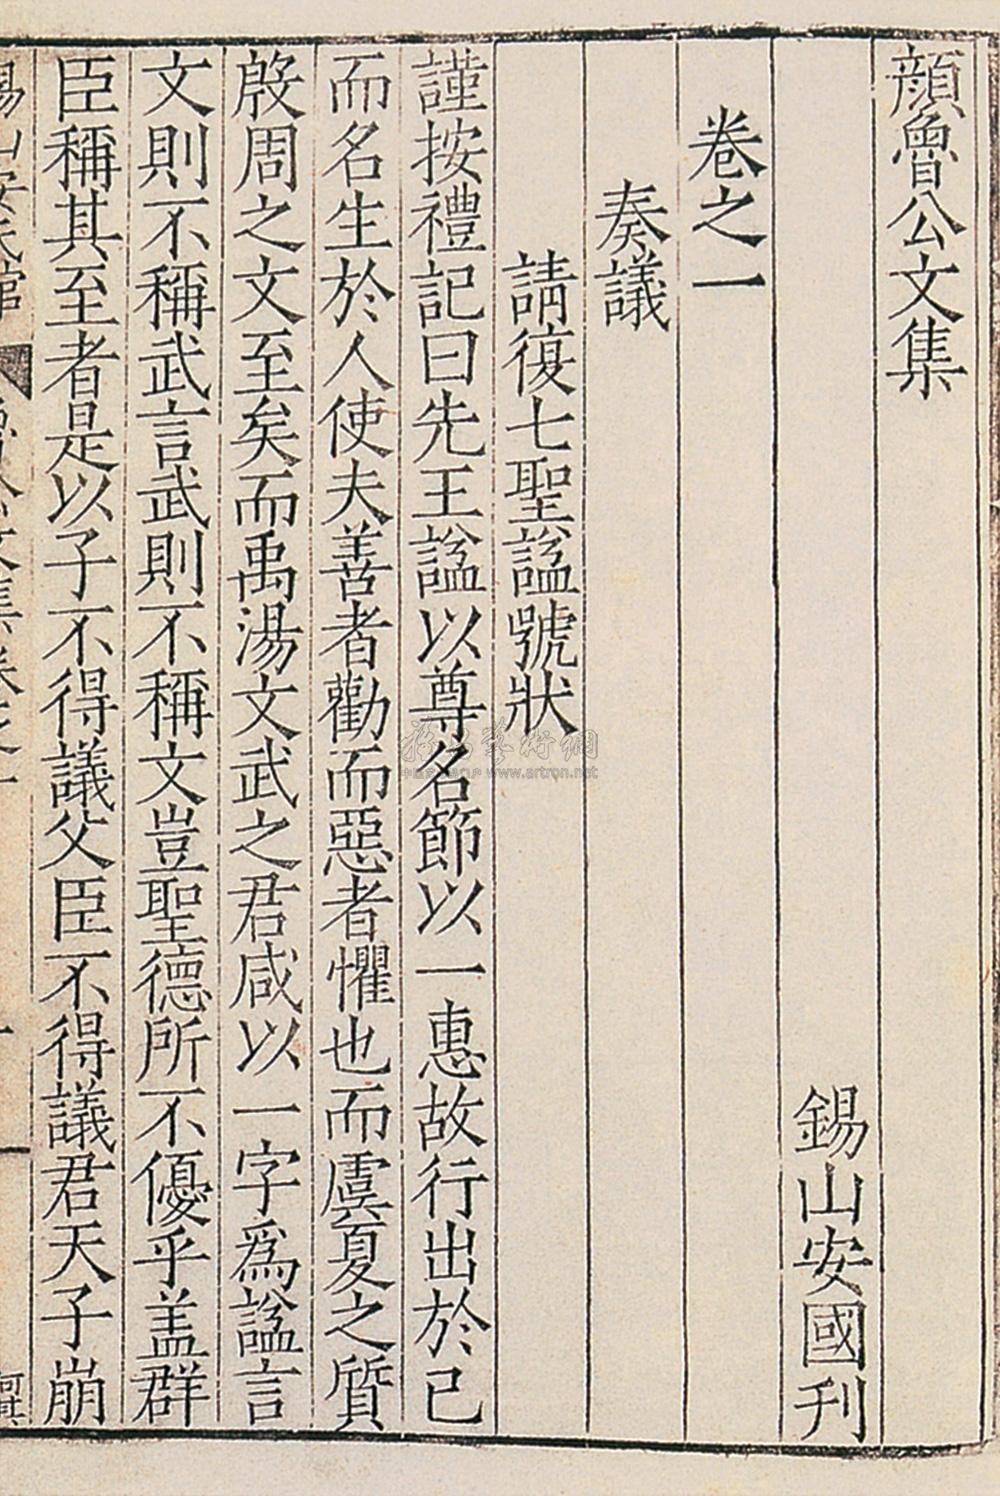 顔魯公文集
錫山安國刋
卷之一
奏議
請復七聖諡號狀
謹按禮記曰先王諡以尊名節以一惠故行出於己
而名生於人使夫善者勸而惡者懼也而虞夏之質
殷周之文至矣而禹湯文武之君咸以一字爲諡言
文則不稱武言武則不稱文豈聖德所不優乎盖群
臣稱其至者是以子不得議父臣不得議君天子崩
錫山安氏館
魯公文集卷之一
www.artron.net